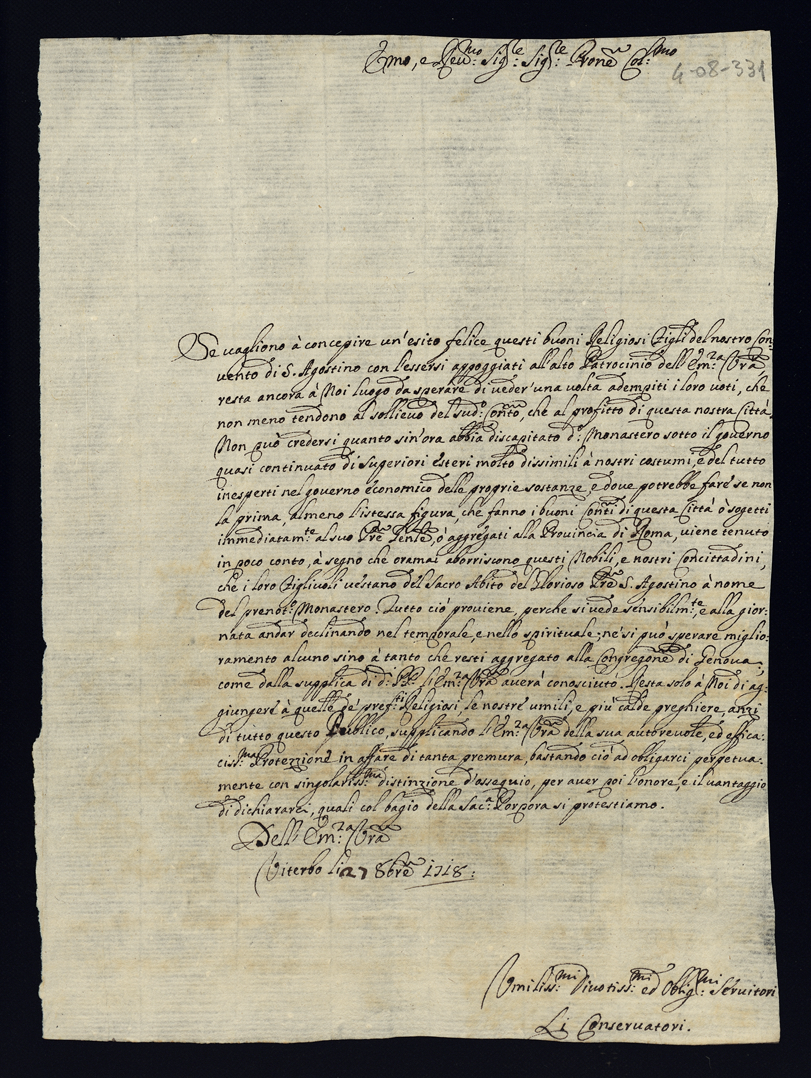 Emo, e Reu:mo Sig:re Sig:re Prone Col:mo
4-08-331
Se vagliono à concepire un'esito felice questi buoni Religiosi Figli del nostro Con-
vento di S. Agostino con l'essersi appoggiati all'alto Patrocinio dell'Em:za Vra,
resta ancora à Noi luogo da sperare di veder'una volta adempiti i loro voti, che
non meno tendono al sollievo del sud:o Conto, che al profitto di questa nostra Città.
Non può credersi quanto sin'ora abbia discapitato d:o Monastero sotto il governo
quasi continuato di Superiori Esteri molto dissimili à nostri costumi, e del tutto
inesperti nel governo economico delle proprie sostanze, e dove potrebbe fare se non
la prima, almeno l'istessa figura, che fanno i buoni Conti di questa Città ò sogetti
immediatam:te al suo Pre Genle, ò aggregati alla Provincia di Roma, viene tenuto
in poco conto, à segno che oramai aborriscono questi Nobili, e nostri Concittadini,
che i loro Figlivoli vestano del Sacro Abito del Glorioso Pre S. Agostino à nome
del prenot:o Monastero. Tutto ciò proviene, perche si vede sensibilm:te, e alla gior-
nata andar declinando nel temporale, e nello spirituale; ne si può sperare miglio-
ramento alcuno sino à tanto che resti aggregato alla Congregone di Genova,
come dalla supplica di d:i l'Em:za Vra averà conosciuto. Resta solo à Noi di ag-
giungere à quelle de' pref:ti Religiosi le nostre umili, e più calde preghiere, anzi
di tutto questo Publico, supplicando l'Em:za Vra della sua autorevole, ed effica-
ciss:ma Protezione in affare di tanta premura, bastando ciò ad obligarci perpetua-
mente con singolariss:ma distinzione d'ossequio, per aver poi l'onore, e il vantaggio
di dichiararci, quali col bagio della Sac:a Porpora si protestiamo.
Dell'Em:za Vra
Viterbo li 27 8bre 1718:
Vmiliss:mi Divotiss:mi ed Oblig:mi Servitori
Li Conservatori.